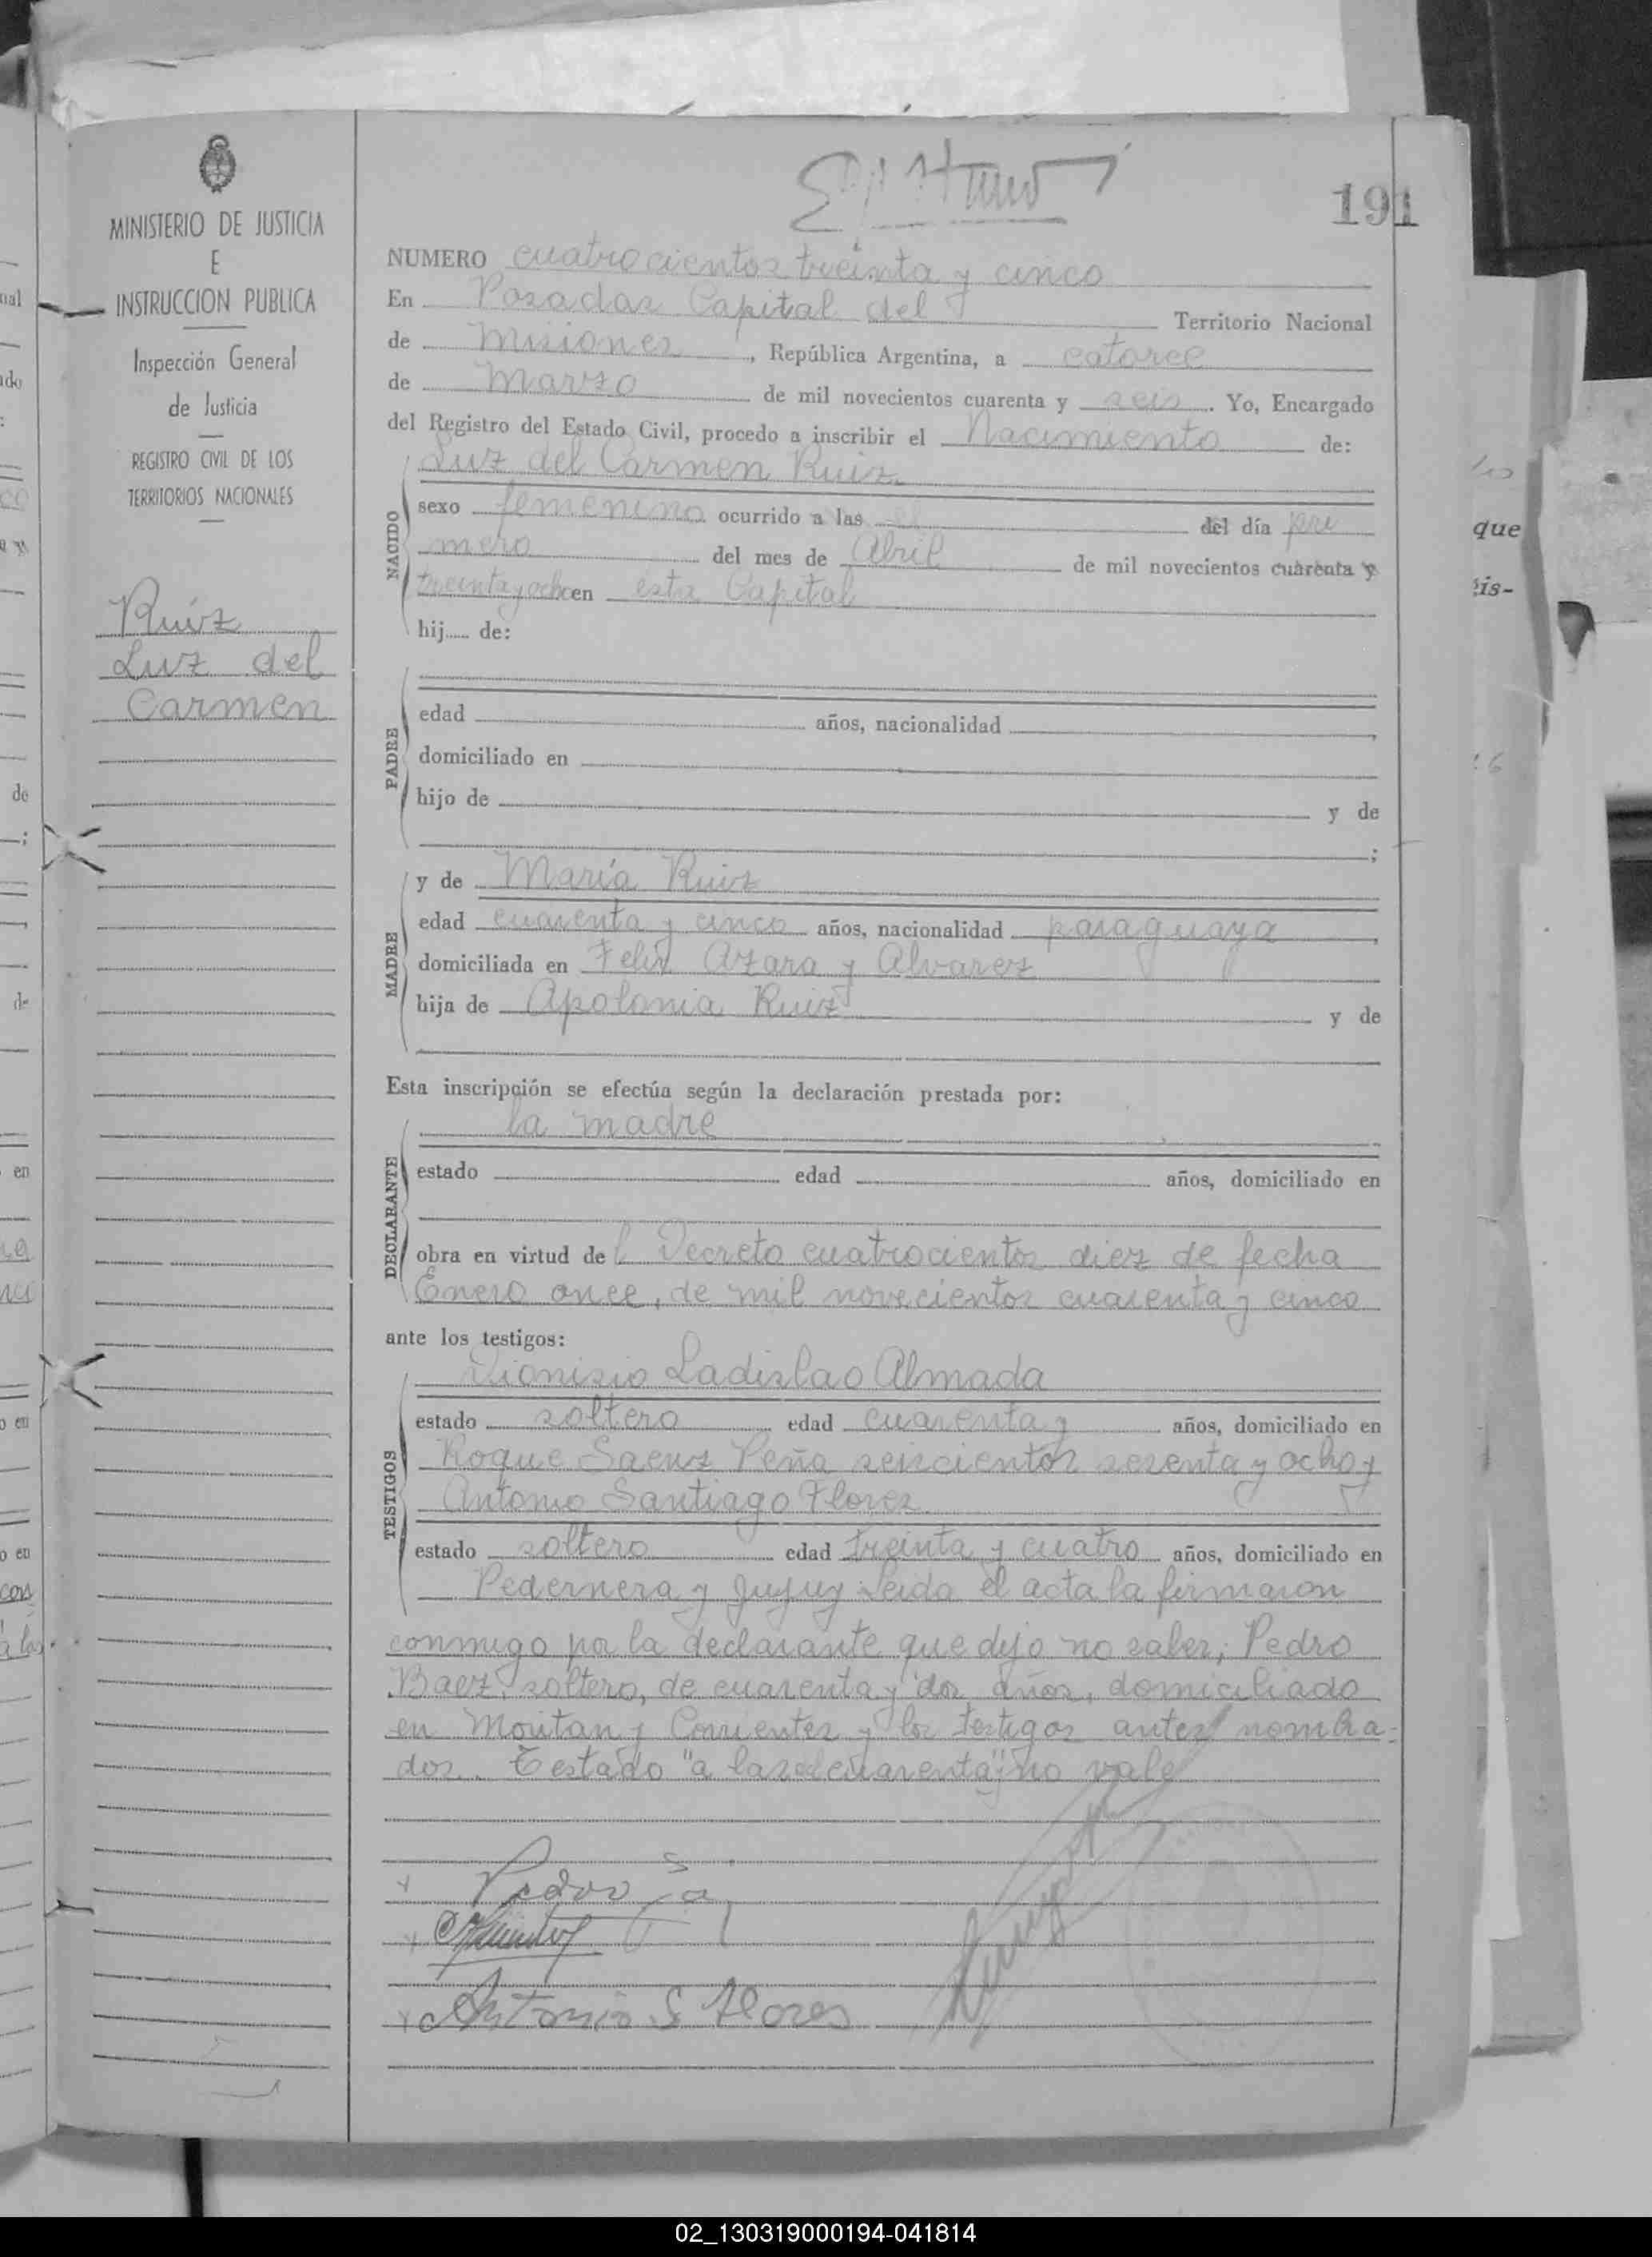 191
MINISTERIO DE JUSTICIA
E
INSTRUCCION PUBLICA
Inspección General
de Justicia
REGISTRO CIVIL DE LOS
TERRITORIOS NACIONALES
Ruiz
Luz del
Carmen
NUMERO cuatrocientos treinta y cinco
En Posadas Capital del Territorio Nacional
de Misiones, República Argentina, a catorce
de Marzo de mil novecientos cuarenta y seis. Yo, Encargado
del Registro del Estado Civil, procedo a inscribir el Nacimiento de:
Luz del Carmen Ruiz
NACIDO
sexo femenino ocurrido a las el del día pri
mero del mes de Abril de mil novecientos cuarenta y
treinta y ocho en esta Capital
hij de:
PADRE
edad años, nacionalidad ,
domiciliado en
hijo de y de
;
MADRE
y de María Ruiz
edad cuarenta y cinco años, nacionalidad paraguaya,
domiciliada en Felix Azara y Alvarez
hija de Apolonia Ruiz y de
Esta inscripción se efectúa según la declaración prestada por:
la madre
DECLARANTE
estado edad años, domiciliado en
obra en virtud del Decreto cuatrocientos diez de fecha
Enero once, de mil novecientos cuarenta y cinco
ante los testigos:
Dionisio Ladislao Almada
TESTIGOS
estado soltero edad cuarenta y años, domiciliado en
Roque Saenz Peña seiscientos sesenta y ocho y
Antonio Santiago Flores
estado soltero edad treinta y cuatro años, domiciliado en
Pedernera y Jujuy. Leida el acta la firmaron
conmigo por la declarante que dijo no saber; Pedro
Baez, soltero, de cuarenta y dos años, domiciliado
en y Corrientes y los testigos antes nombra=
dos. Testado "a las el cuarenta y" no vale
Pedro
Antonio S Flores
que
is-
ual
de
en
o en
o en
02_130319000194-041814